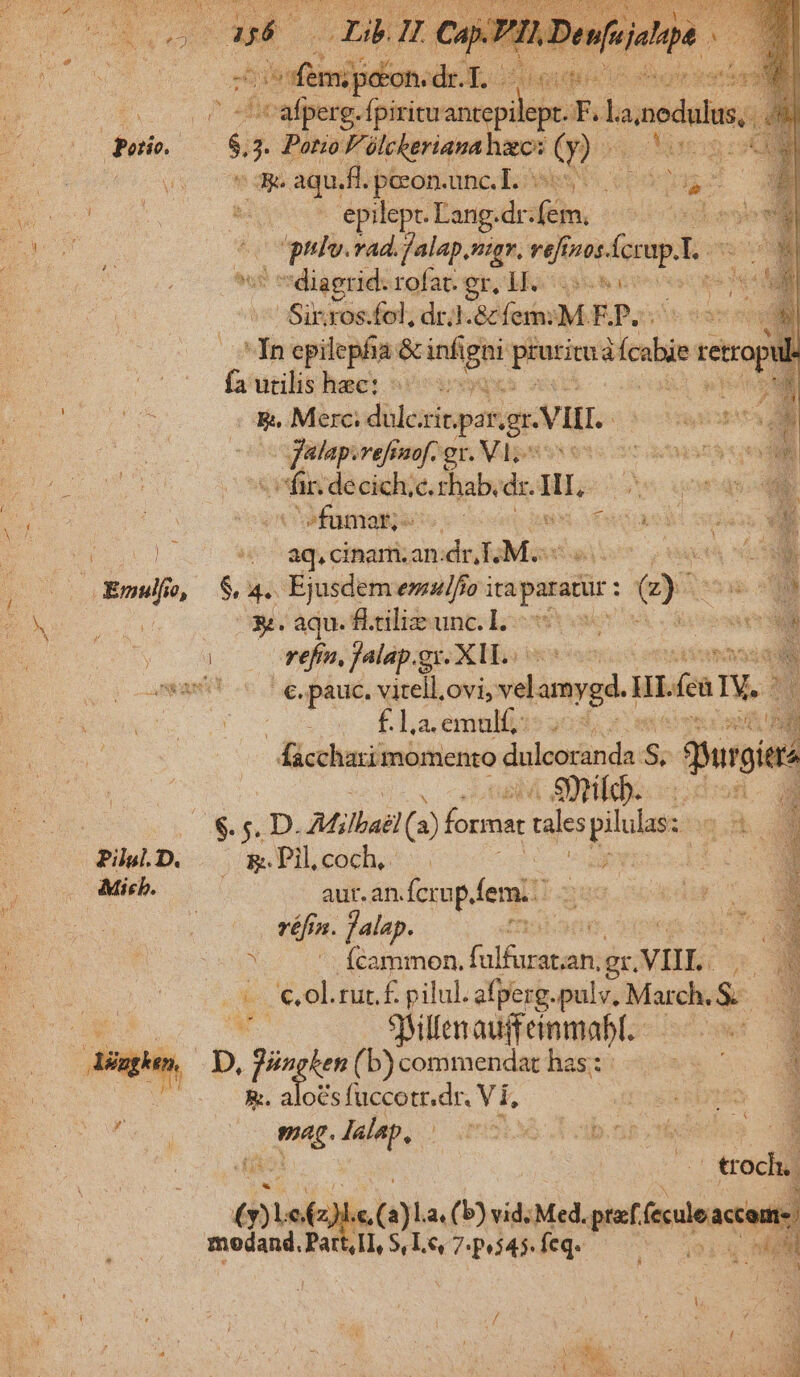 156 Lib. II. Cap. VII. De usu jalapæ
sem. pœon. dr. I.
asperg. spiritu antepilept. F. l. a. nodulus,
Potio. §. 3. Potio Völckeriana hæc: (y)
℞. aqu. fl. pœon. unc. I.
epilept. Lang. dr. sem.
pulv. rad. Jalap. nigr. resinos. scrup. I.
diagrid. rosat. gr. II.
Sir. ros. sol. dr. I. & sem. M. F. P.
In epilepsia & insigni pruritu à scabie retropul-
sa utilis hæc:
℞. Merc. dulc. rit. par. gr. VIII.
Jalap. resinos. gr. VI.
sir. de cich. c. rhab. dr. III.
fumar.
aq. cinam. an. dr. I. M.
Emulsio, §. 4. Ejusdem emulsio ita paratur: (z)
℞. aqu. fl. tiliæ unc. I.
resin. Jalap. gr. XII.
c. pauc. vitell. ovi, vel amygd. III. seu IV.
f. l. a. emuls.
sacchari momento dulcoranda S. Purgiers
Milch.
§. 5. D. Milhaël (a) format tales pilulas:
Pilul. D. ℞. Pil. coch.
Mich. aur. an. scrup. sem.
résin. Jalap.
scammon. sulfurat. an. gr. VIII.
c. ol. rut. f. pilul. asperg. pulv. March. S.
Pillen auff einmahl.
Jüngken, D. Jüngken (b) commendat has:
℞. aloës succotr. dr. VI.
mag. Jalap.
troch.
(y) l. c. (z) l. c. (a) l. a. (b) vid. Med. præs. secule accom-
modand. Part. II. S. I. c. 7. p. 545. seq.